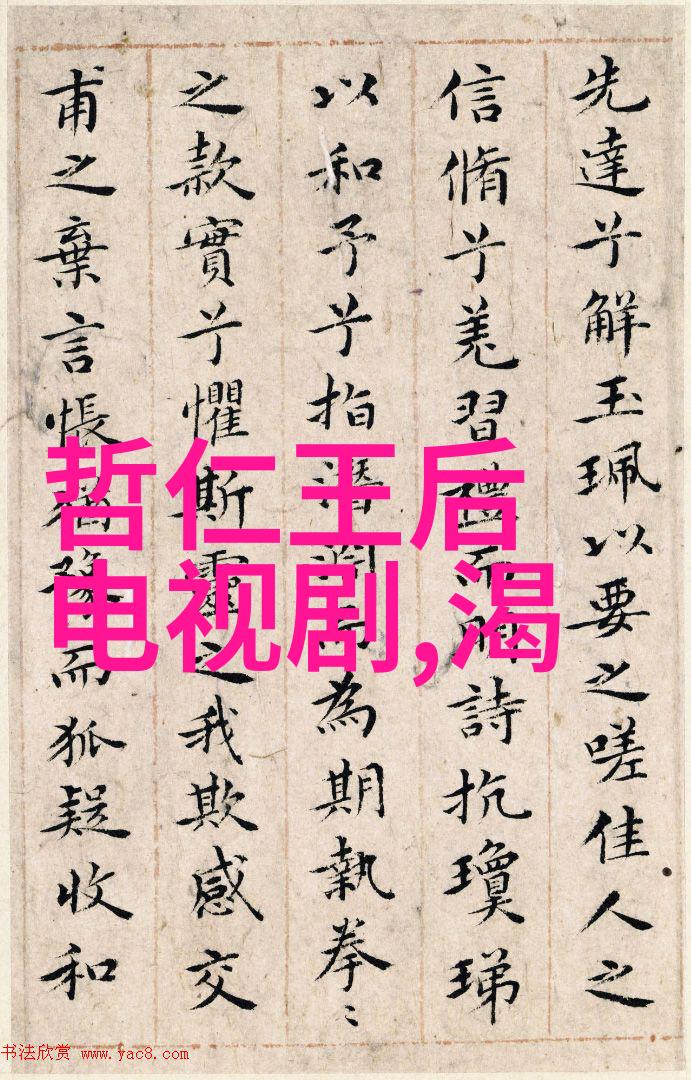 先達兮解玉珮以要之嗟佳人之
信脩兮羌習禮而明詩抗瓊珶
以和予兮指潛淵而為期執拳〻
之款實兮懼斯靈之我欺感交
甫之棄言悵猶豫而狐疑收和
哲仁王后
电视剧,渴
书法欣赏 www.yac8.com